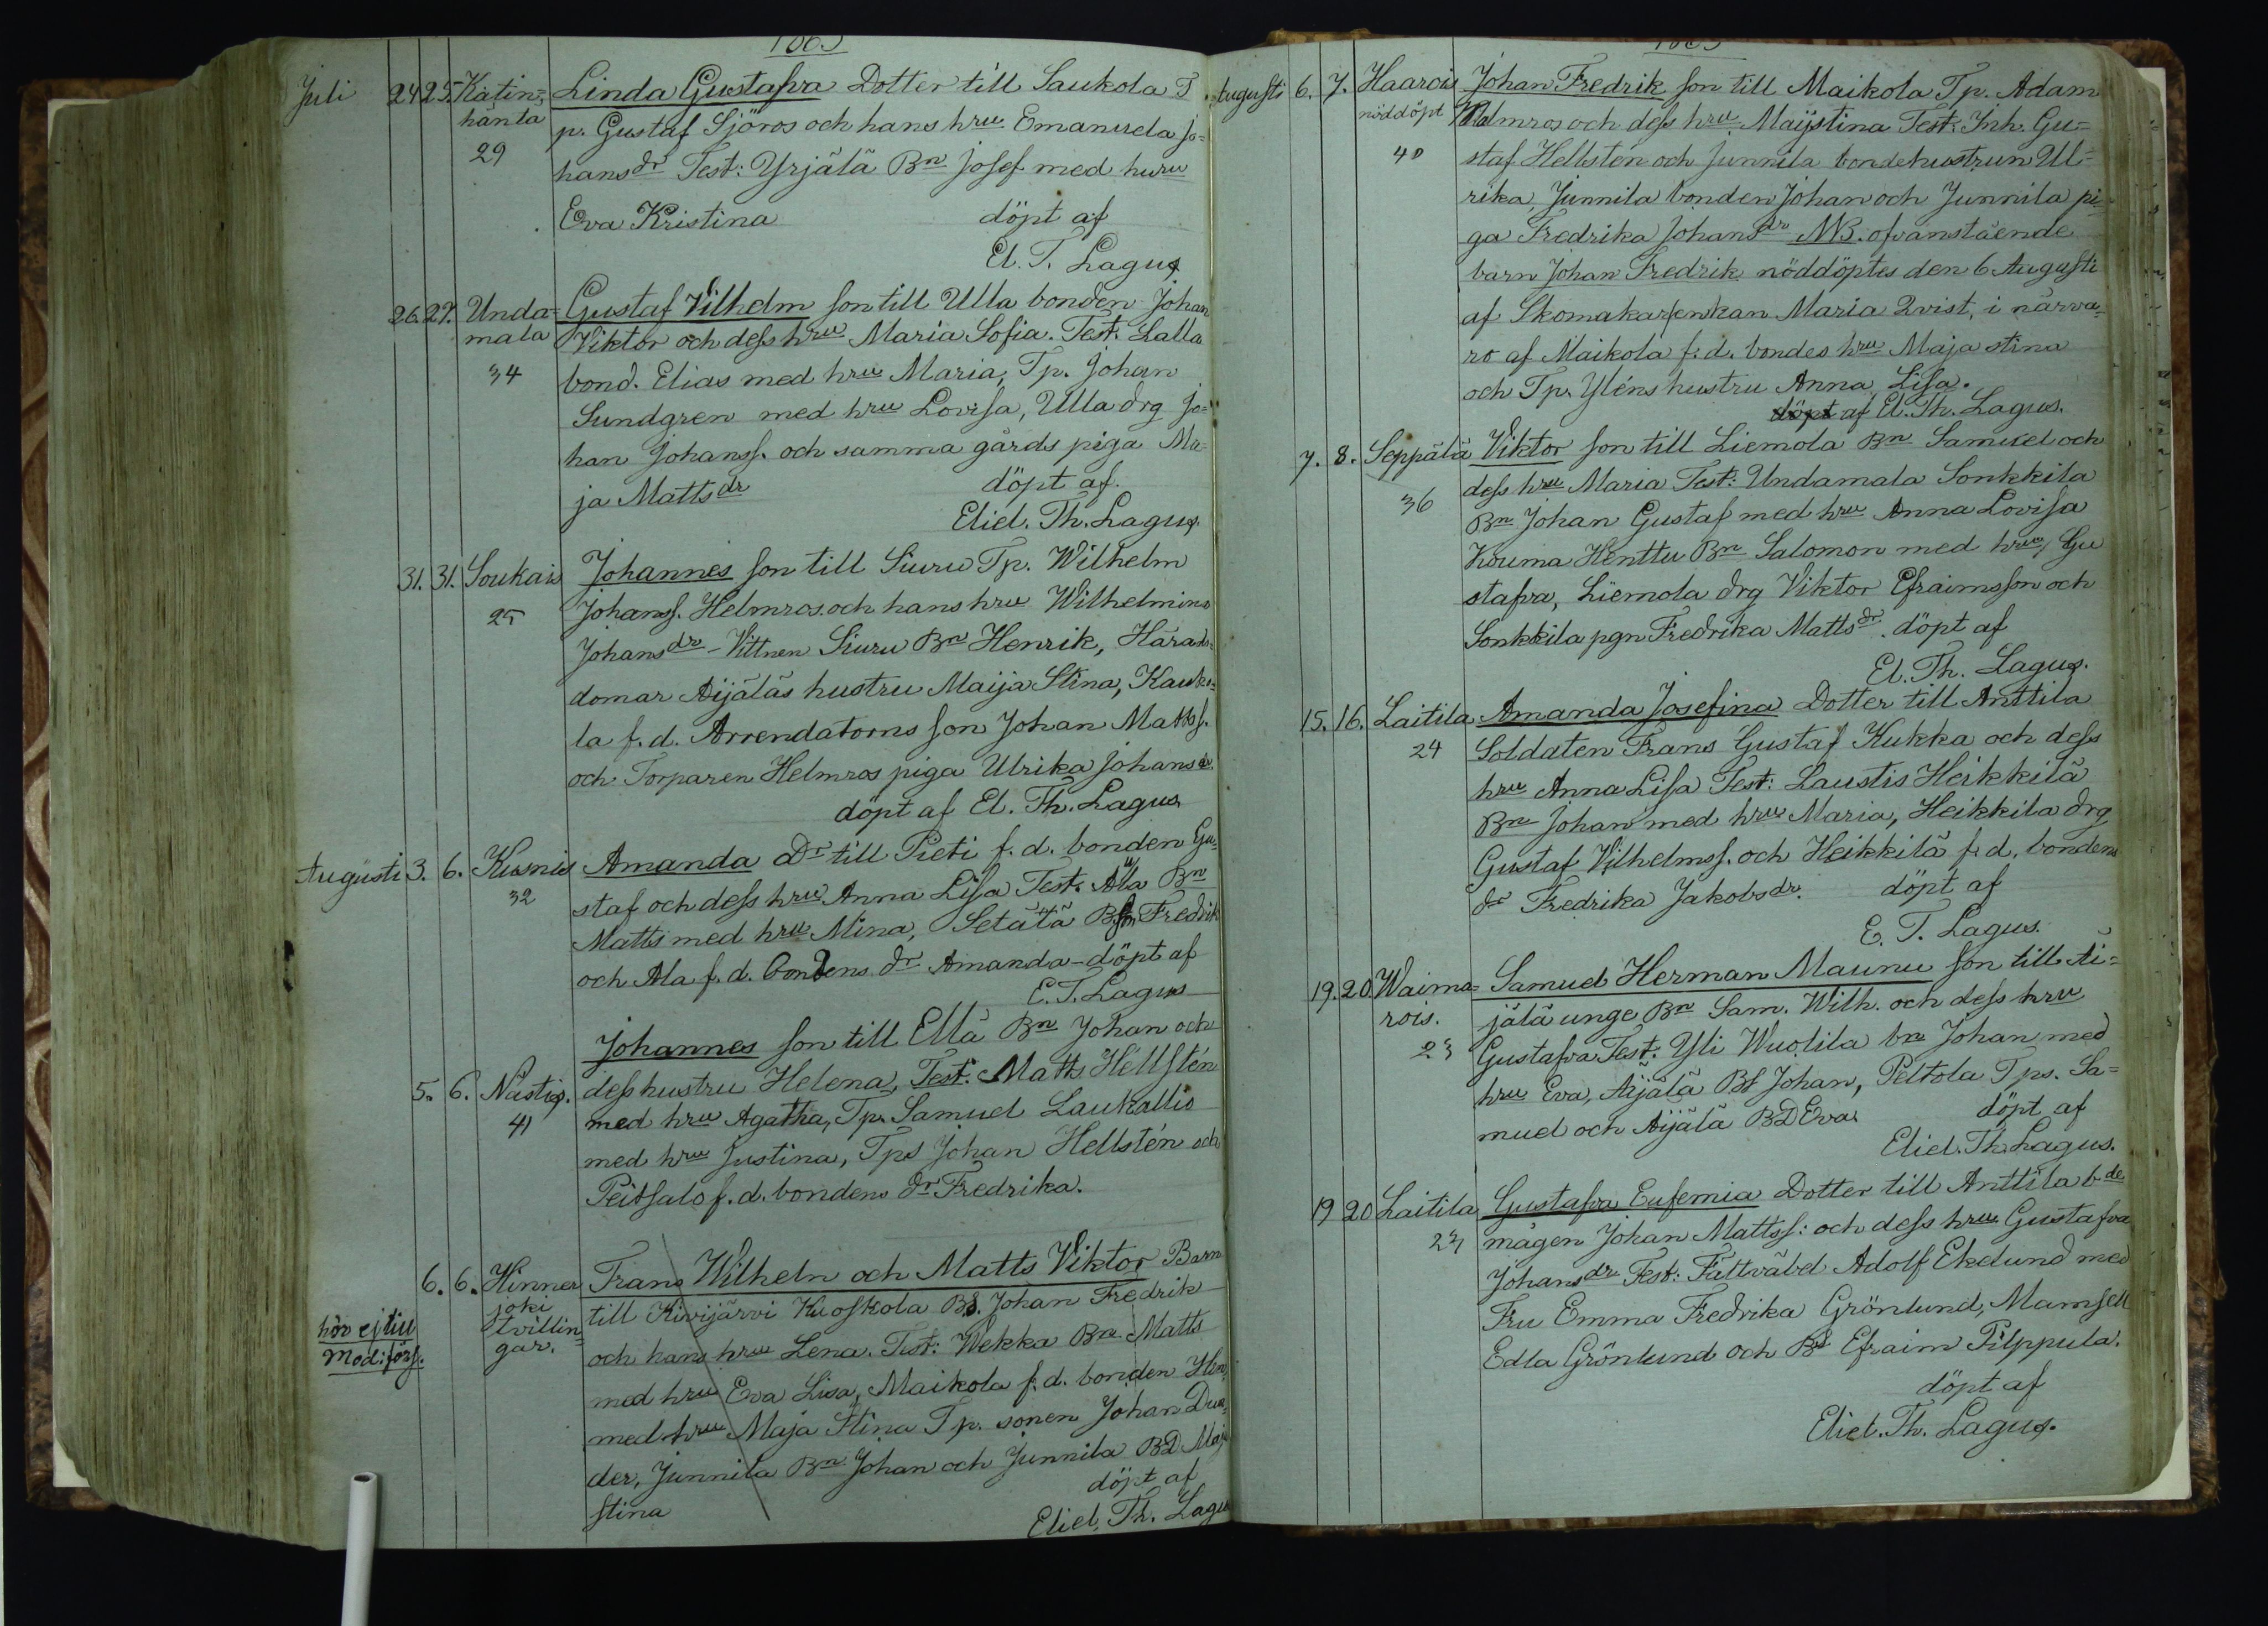 1865
Juli 24 25. Katin= Linda Gustafva Dotter till Saukola T
hänta p. Gustaf Sjöros och hans hru Emanuela Jo=
29 hansdr Test: Yrjälä Bn Josef med huru
Eva Kristina döpt af
El. T. Lagus
26. 27. Unda= Gustaf Vilhelm son till Ulla bonden Johan
mala Viktor och dess hru Maria Sofia. Test: Lalla
34 bond. Elias med hru Maria, Tp. Johan
Sundgren med hru Lovisa, Ulla drg Jo=
han Johanss. och samma gårds piga Ma=
ja Mattsdr döpt af.
Eliel. Th. Lagus.
31. 31. Soukais Johannes son till Siuru Tp. Wilhelm
25 Johanss. Helmros. och hans hru Wilhelmina
Johansdr - Vittnen Siuru Bn Henrik, Härads=
domar Äijäläs hustru Maija Stina, Kauko=
la f. d. Arrendatorns son Johan Mattss.
och Torparen Helmros piga Ulrika Johansdr.
döpt af El. Th. Lagus
Augusti 3. 6. Kusnis Amanda Dr till Pieti f. d. bonden Gu=
32 staf och dess hru Anna Lisa Test: Ala Bn
Matts med hru Mina, Setälä Fredrik
och Ala f. d. bondens dr Amanda - döpt af
E. T. Lagus
Johannes son till Ellä Bn Johan och
5. 6. Nästis. dess hustru Helena, Test: Matts Hellstén
41 med hru Agatha, Tp. Samuel Laukallio
med hru Justina, Tps Johan Hellstén och
Peitsalo f. d. bondens dr Fredrika.
6. 6. Hinner Frans Wilhelm och Matts Viktor Barn
joki till Kivijärvi Kuoskola Bs. Johan Fredrik
hör ej till tvillin= och hans hru Lena. Test: Wekka Bn Matts
Mod: förs. gar. med hru Eva Lisa, Maikola f. d. bonden
med hru Maja Stina Tp. sonen Johan
der, Junnila Bn Johan och Junnila BD Maja
stina döpt af
Eliel. Th. Lagus
1865
Augusti 6. 7. Haarois Johan Fredrik son till Maikola Tp. Adam
nöddöpt Malmros och dess hru Maijstina Test: Inh. Gu=
40 staf Hellstén och Junnila bondehustrun Ul=
rika, Junnila bonden Johan och Junnila pi=
ga Fredrika Johansdr NB. ofvanstående
barn Johan Fredrik nöddöptes den 6 Augusti
af Skomakarenkan Maria Qvist, i närva=
ro af Maikola f. d. bondes hru Maja stina
och Tp. Yléns hustru Anna Lisa.
döpt af El. Th. Lagus.
7. 8. Seppälä Viktor son till Liemola Bn Samuel och
36 dess hru Maria Test: Undamala Sonkkila
Bn Johan Gustaf med hru Anna Lovisa
Kouma Henttu Bn Salomon med hru Gu
stafva, Liemola drg Viktor Efraimsson och
Sonkkila pgn Fredrika Mattsdr. döpt af
El. Th. Lagus.
15. 16. Laitila Amanda Josefina Dotter till Anttila
24 Soldaten Frans Gustaf Kukka och dess
hru Anna Lisa Test: Laustis Heikkilä
Bn Johan med hru Maria, Heikkila drg
Gustaf Vilhelmss. och Heikkilä f. d. bondens
dr Fredrika Jakobsdr. döpt af
E. T. Lagus.
19. 20. Waima= Samuel Herman Maunu son till Äi=
rois. jälä unge Bn Sam. Wilh. och dess hru
23 Gustafva Test: Yli Wuolila bn Johan med
hru Eva, Äijälä Bs Johan, Peltola Tps. Sa=
muel och Äijälä BD Eva döpt af
Eliel. Th. Lagus.
19 20 Laitila Gustafva Eufemia Dotter till Anttila bde
23 mågen Johan Mattss: och dess hru Gustafva
Johansdr Test: Fältväbel Adolf Ekelund med
Fru Emma Fredrika Grönlund, Mamsell
Edla Grönlund och Bs Efraim Pilppula.
döpt af
Eliel. Th. Lagus.